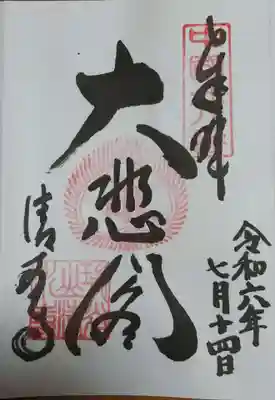 奉拝
令和六年
七月十四日
大悲閣
清水寺